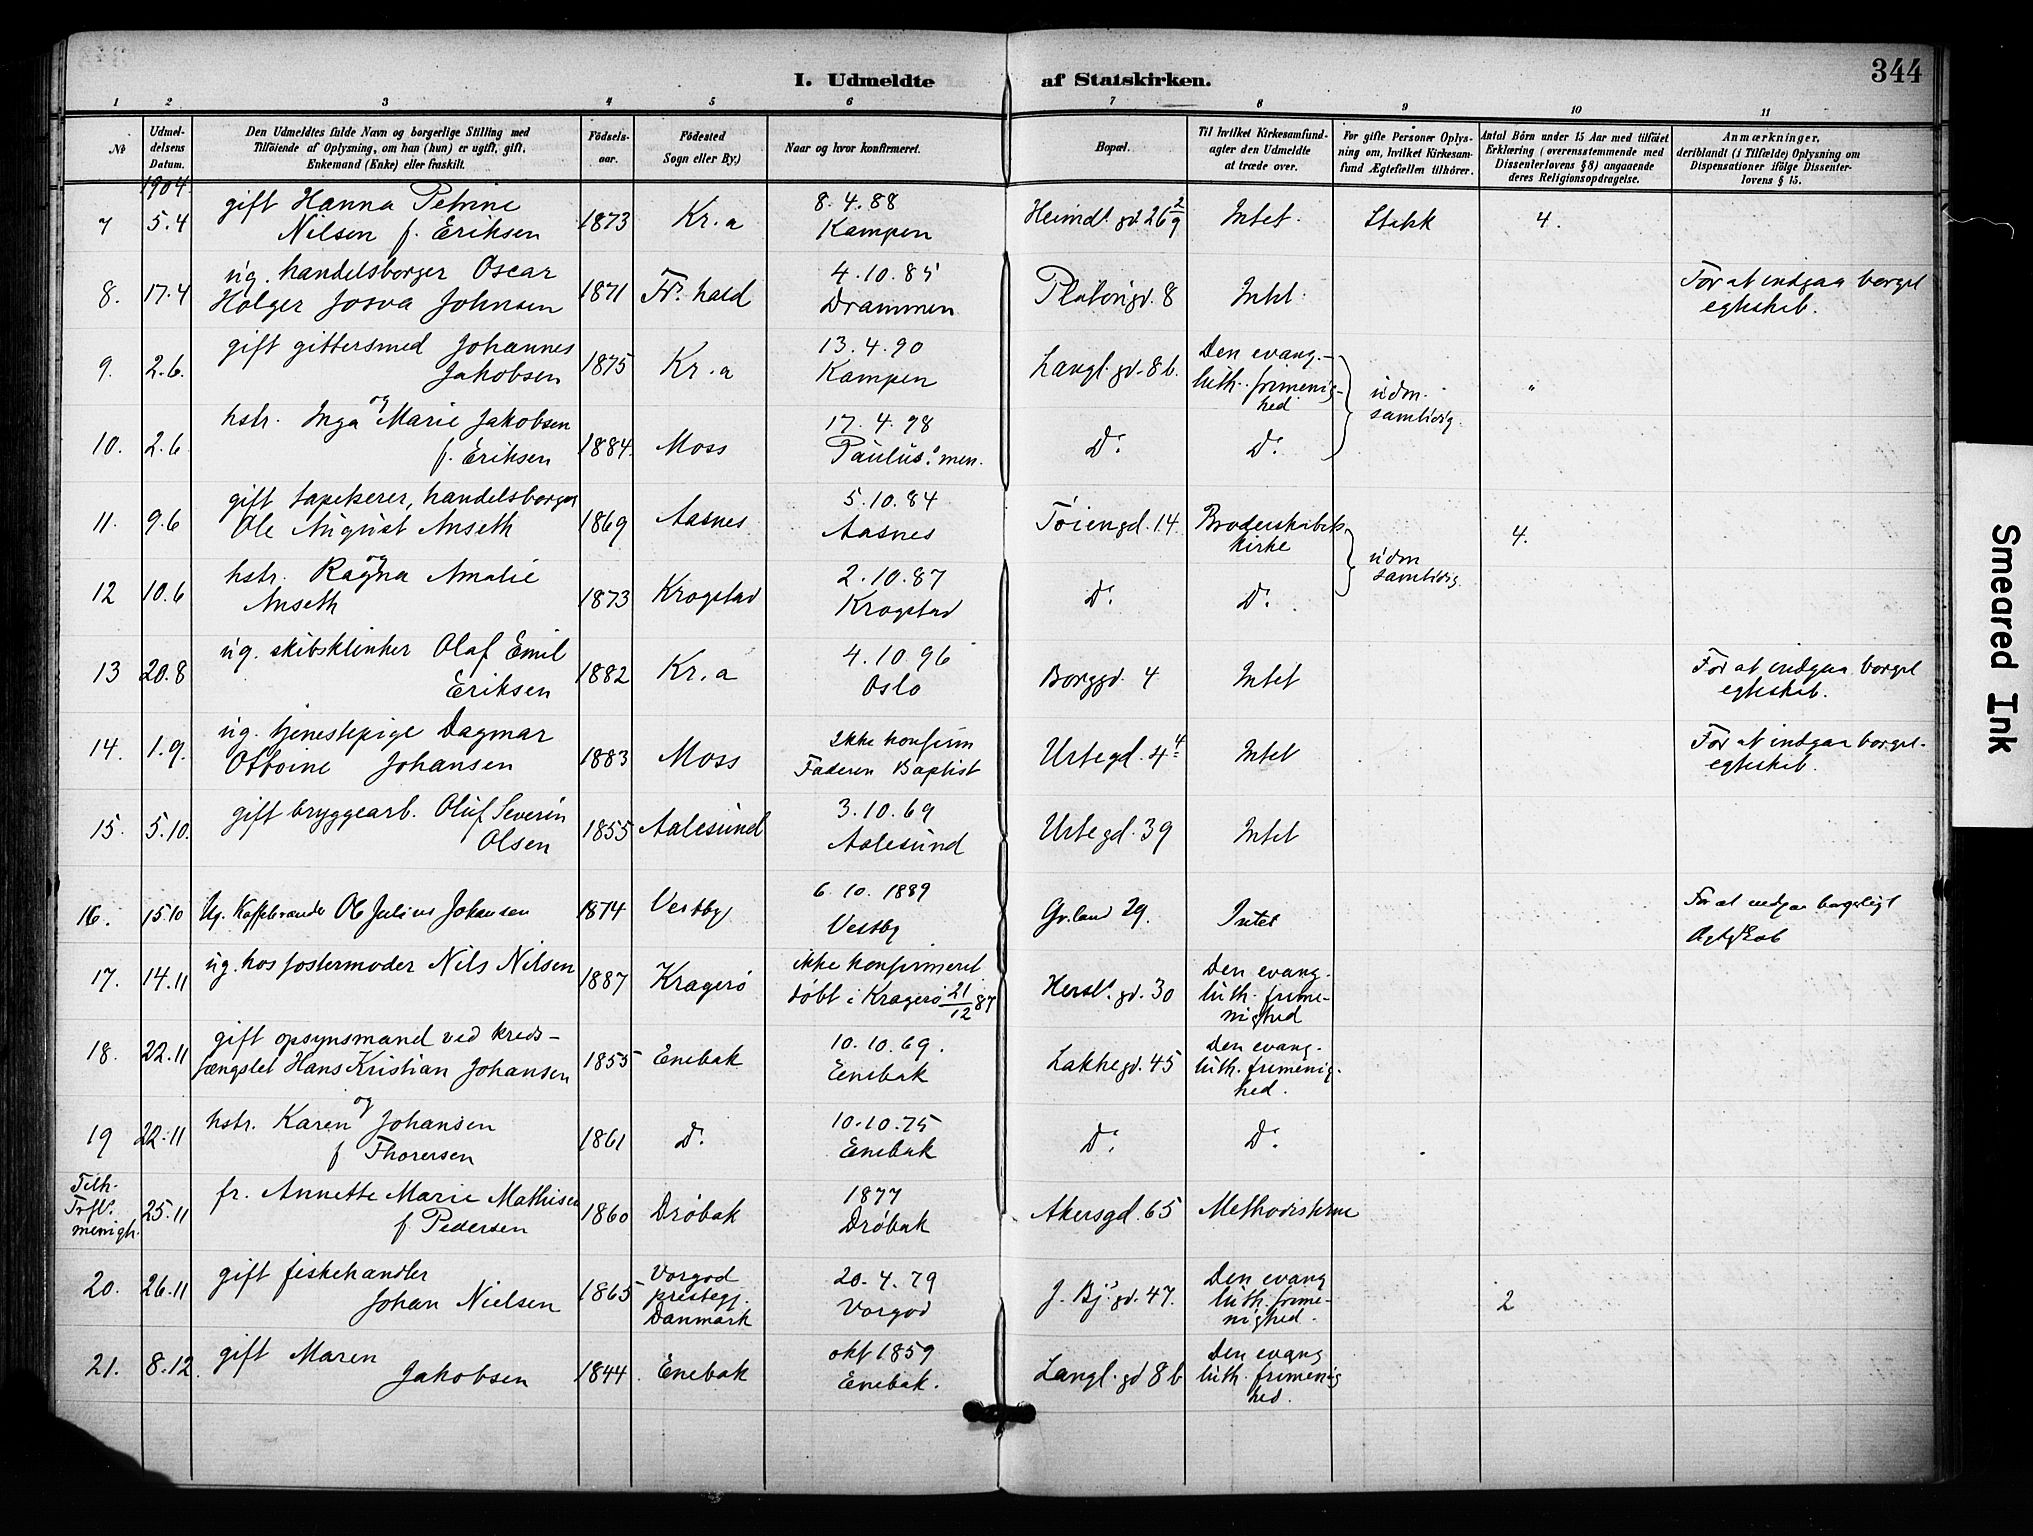 344
I. Udmeldte af Statskirken.
1 2 3 4 5 6 7 8 9 10 11
No
Udmel-
delsens
Datum.
Den Udmeldtes fulde Navn og borgerlige Stilling med
Tilföiende af Oplysning, om han (hun) er ugift, gift,
Enkemand (Enke) eller fraskilt.
Födsels-
aar.
Födested
Sogn eller By.)
Naar og hvor konfirmeret.
Bopæl.
Til hvilket Kirkesamfund-
agter den Udmeldte
at træde over.
For gifte Personer Oplys-
ning om, hvilket Kirkesam-
fund Ægtefællen tilhörer.
Antal Börn under 15 Aar med tilföiet
Erklæring (overensstemmende med
Dissenterlovens § 8) angaaende
deres Religionsopdragelse.
Anmærkninger,
deriblandt (i Tilfælde) Oplysning om
Dispensationer ifölge Dissenter-
lovens § 15.
1904
7 5.4 gift Hanna Petrine
Nilsen f. Eriksen 1873 Kr.a 8.4.88
Kampen Heimdl. gd. 26 2/9 Intet. Statsk 4.
8. 17.4 ug. handelsborger Oscar
Holger Josva Johnsen 1871 Fr.hald 4.10.85
Drammen Platougd. 8 Intet For at indgaa borgel
egteskab.
9. 2.6. gift gittersmed Johannes
Jakobsen 1875 Kr.a 13.4.90
Kampen Langl. gd. 8b. Den evang.-
luth. frimenig-
hed udm.
samtidig. "
og
10. 2.6 hstr. Inga Marie Jakobsen
f. Eriksen 1884. Moss 17.4.98
Paulus. men. Do Do
11. 9.6 gift tapetserer, handelsborger
Ole August Anseth 1869 Aasnes 5.10.84
Aasnes Töiengd. 14. Broderskabets
kirke udm
samtidig. 4.
og
12 10.6 hstr. Ragna Amalie
Anseth 1873 Krogstad 2.10.87
Krogstad Do Do
13 20.8 ug. skibsklinker Olaf Emil
Eriksen 1882 Kr.a 4.10.96
Oslo Borggd. 4 Intet For at indgaa borgel
egteskab.
14. 1.9. ug. tjenestepige Dagmar
Ottoine Johansen 1883 Moss Ikke konfirm
Faderen Baptist Urtegd. 4 4 Intet For at indgaa borgel-
egteskab.
15. 5.10. gift bryggearb. Oluf Severin
Olsen 1855 Aalesund 3.10.69
Aalesund Urtegd. 39 Intet
16. 15.10 Ug. Kaffebrænder Ole Julius Johansen 1874 Vestby 6.10.1889
Vestby Gr.land 29. Intet For at indgaa borgerligt
Ægteskab
17. 14.11 ug. hos fostermoder Nils Nilsen 1887 Kragerö ikke konfirmeret
döbt i Kragerö 21/12 87 Hersl. gd. 30 Den evang.
luth. frime-
nighed
18. 22.11 gift opsynsmand ved kreds-
fængslet Hans Kristian Johansen 1855 Enebak 10.10.69.
Enebak Lakkegd. 45 Den evang.
luth. frimenig-
hed.
og
19 22.11 hstr. Karen Johansen
f Thorersen 1861 Do 10.10.75
Enebak Do Do
Tilh.
Trfl.
menigh. 25.11 fr. Annette Marie Mathisen
f Pedersen 1860 Dröbak 1877
Dröbak Akersgd. 65 Methodisterne
20. 26.11 gift fiskehandler
Johan Nielsen 1865 Vorgod
prestegj.
Danmark 20.4.79
Vorgod J. Bj. gd. 47. Den evang
luth. frime-
nighed. 2
21. 8.12. gift Maren
Jakobsen 1844 Enebak okt 1859
Enebak. Langl. gd 8b Den evang
luth. frimenig
hed.
Smeared Ink